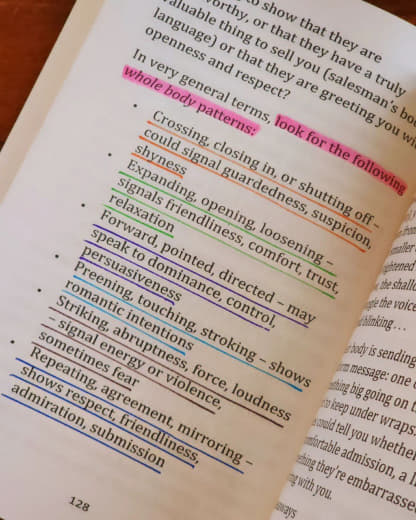 to show that they are
worthy, or that they have a truly
valuable thing to sell you (salesman's
language) or that they are greeting you
openness and respect?
In very general terms, look for the following
whole body patterns:
• Crossing, closing in, or shutting off –
could signal guardedness, suspicion,
shyness
• Expanding, opening, loosening –
signals friendliness, comfort, trust,
relaxation
• Forward, pointed, directed – may
speak to dominance, control,
persuasiveness
• Preening, touching, stroking – shows
romantic intentions
• Striking, abruptness, force, loudness
– signal energy or violence,
sometimes fear
• Repeating, agreement, mirroring –
shows respect, friendliness,
admiration, submission
128
the voice
blinking...
body is sending
message: one
thing big going on
to keep under wraps.
could tell you whether
admission, a
they're embarrassed
with you.